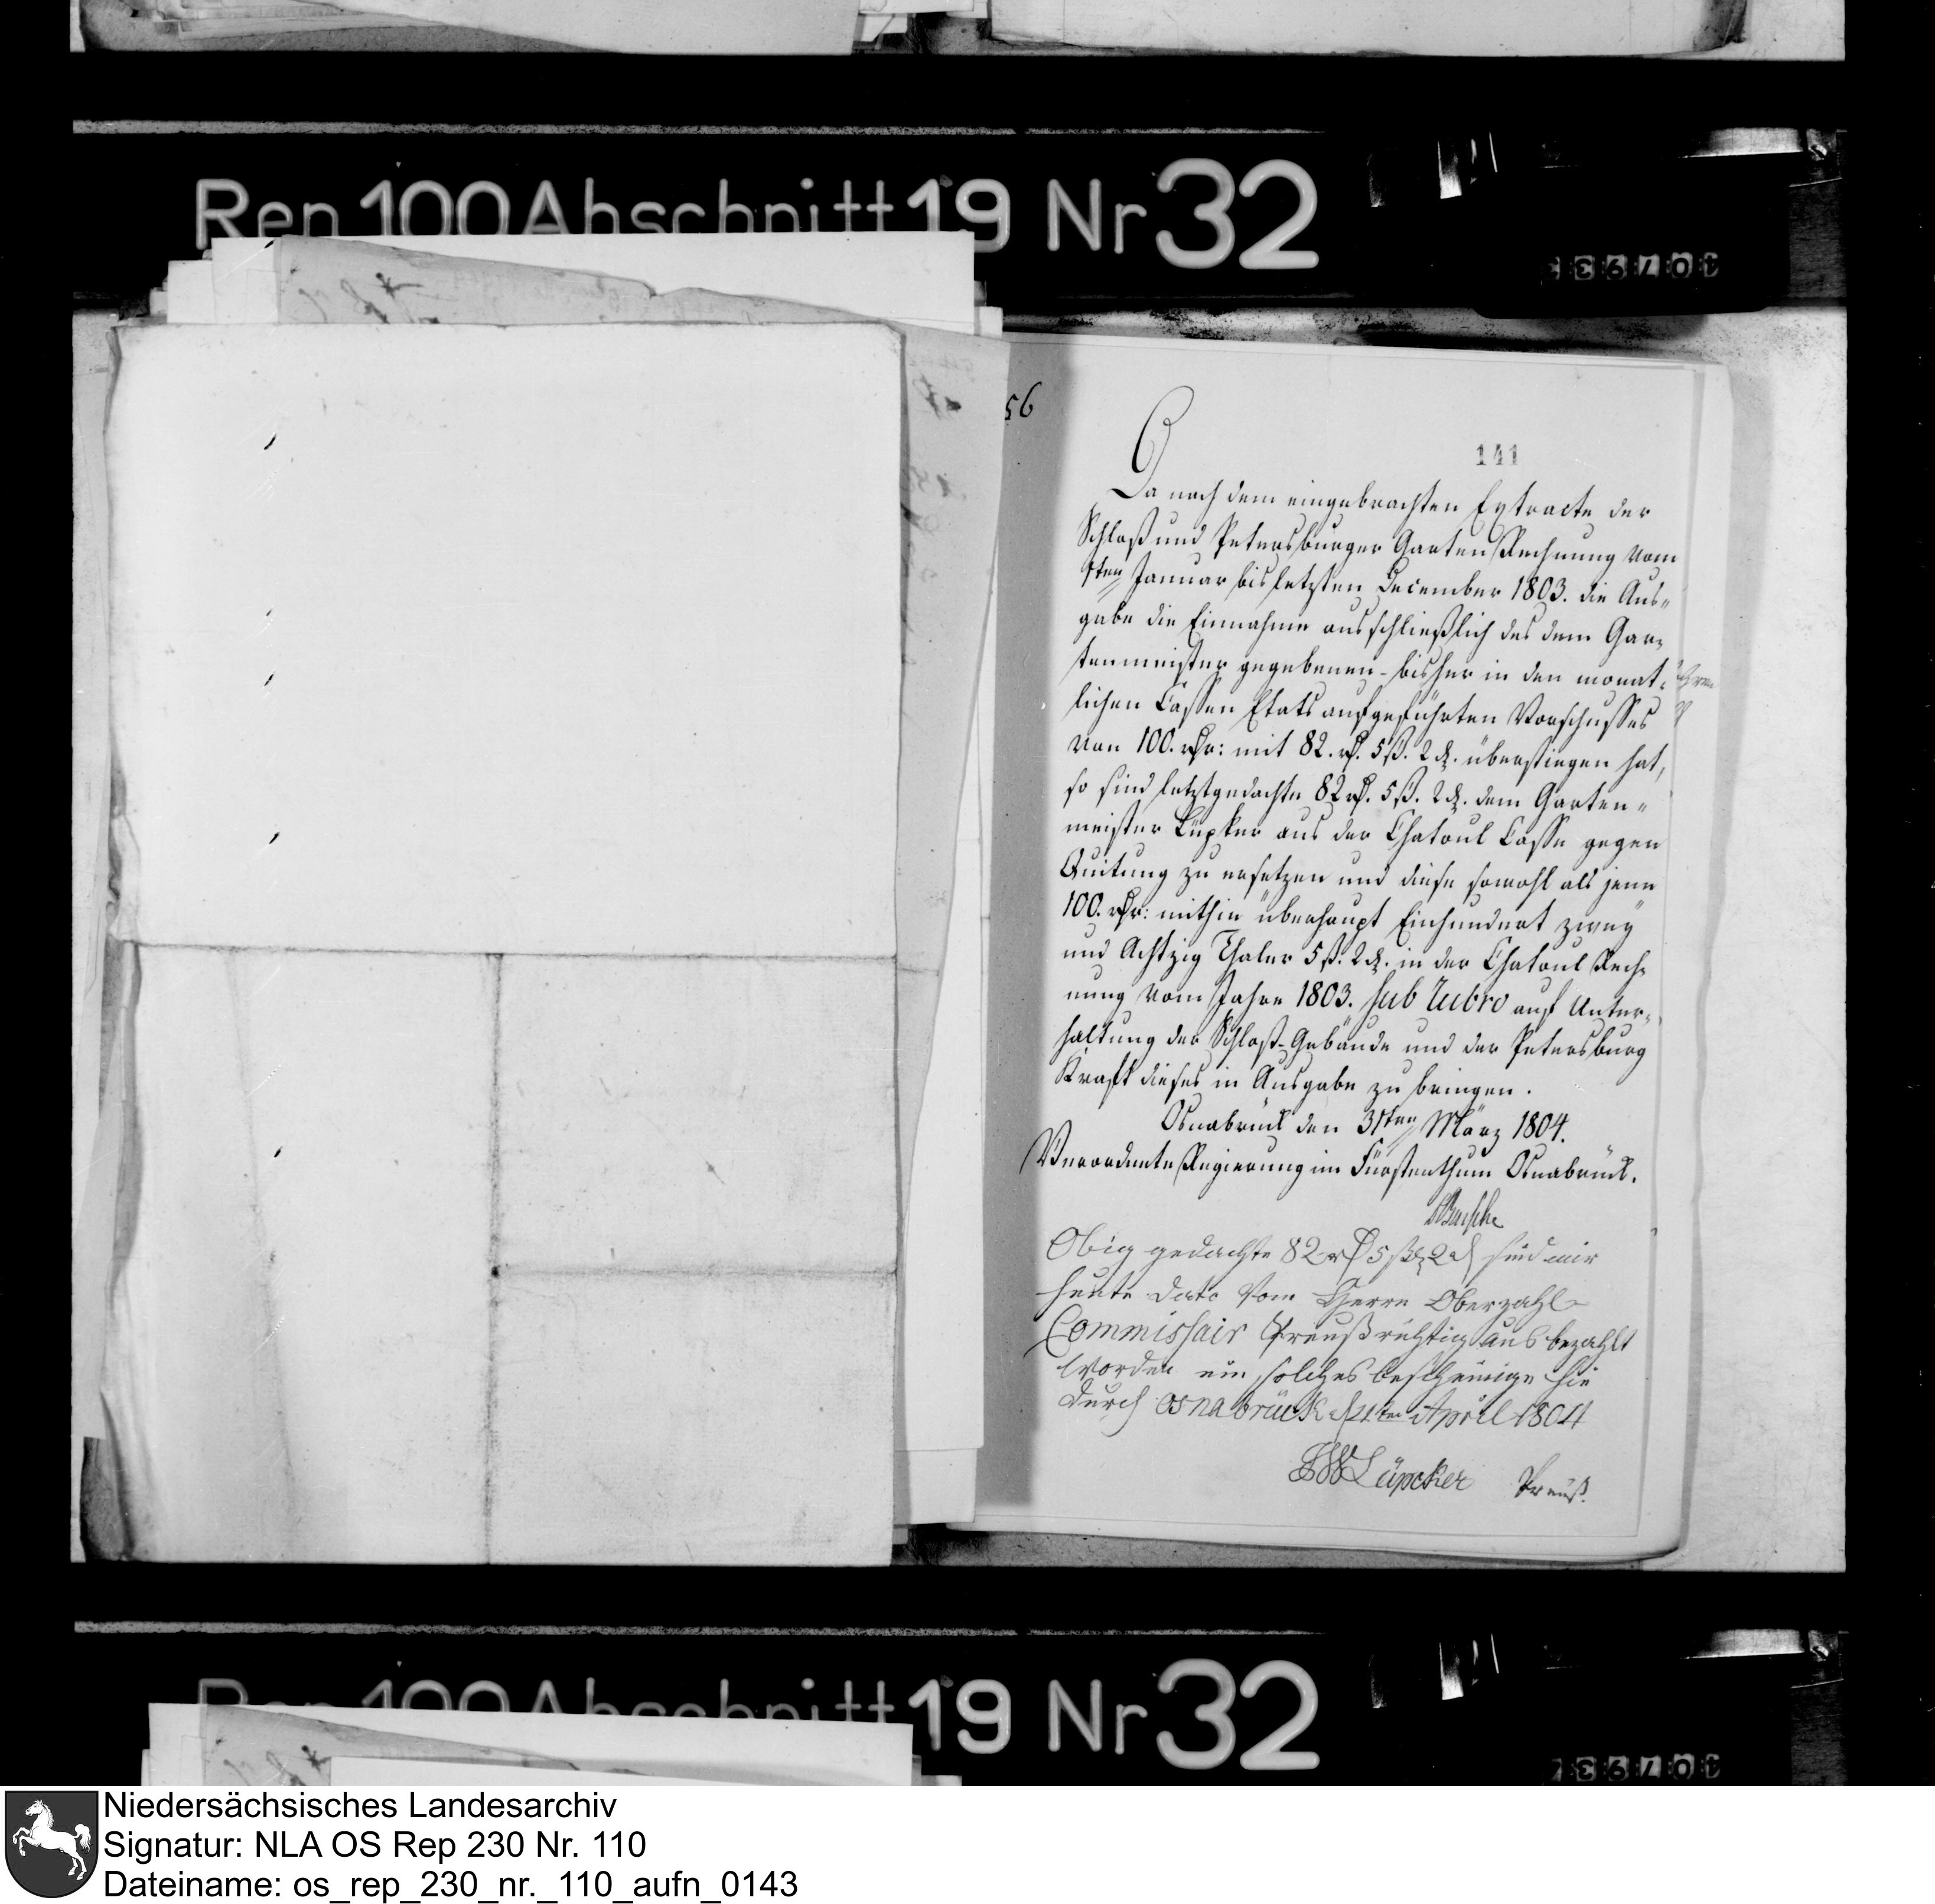 Rep 100 Abschnitt 19 Nr 32
56
141
Da nach dem eingebrachten Extracte der
Schloß und Petersburger Garten Rechnung vom
1sten Januar bis letzten December 1803. die Aus-
gabe die Einnahme ausschließlich des dem Gar-
tenmeister gegebenen - bisher in den monat-
lichen Cassen Etats aufgeführten Vorschusses
von 100. rthr: mit 82. rth. 5 ß. 2 d. überstiegen hat,
so sind letztgedachte 82 rth. 5 ß. 2 d. dem Garten-
meister Lüpker aus der Chatoul Casse gegen
Quitung zu ersetzen und diese sowohl als jene
100. rthr: mithin überhaupt Einhundert zwey
und Achtzig Thaler 5 ß. 2 d. in der Chatoul Rech-
nung vom Jahre 1803. sub Rubro auf Unter-
haltung der Schloß-Gebäude und der Petersburg
Kraft dieses in Ausgabe zu bringen.
Osnabrück den 31sten März 1804.
Verordente Regierung im Fürstenthum Osnabrück.
Busche
Obig gedachte 82 rth 5 ß 2 d sind mir
heute dato vom Herrn Oberzahl-
Commissair Preuß richtig aus bezahlt
worden ein solches bescheinige hie
durch Osnabrück d April 1804
Lüpcker Preuß.
19 Nr 32
Niedersächsisches Landesarchiv
Signatur: NLA OS Rep 230 Nr. 110
Dateiname: os_rep_230_nr._110_aufn_0143